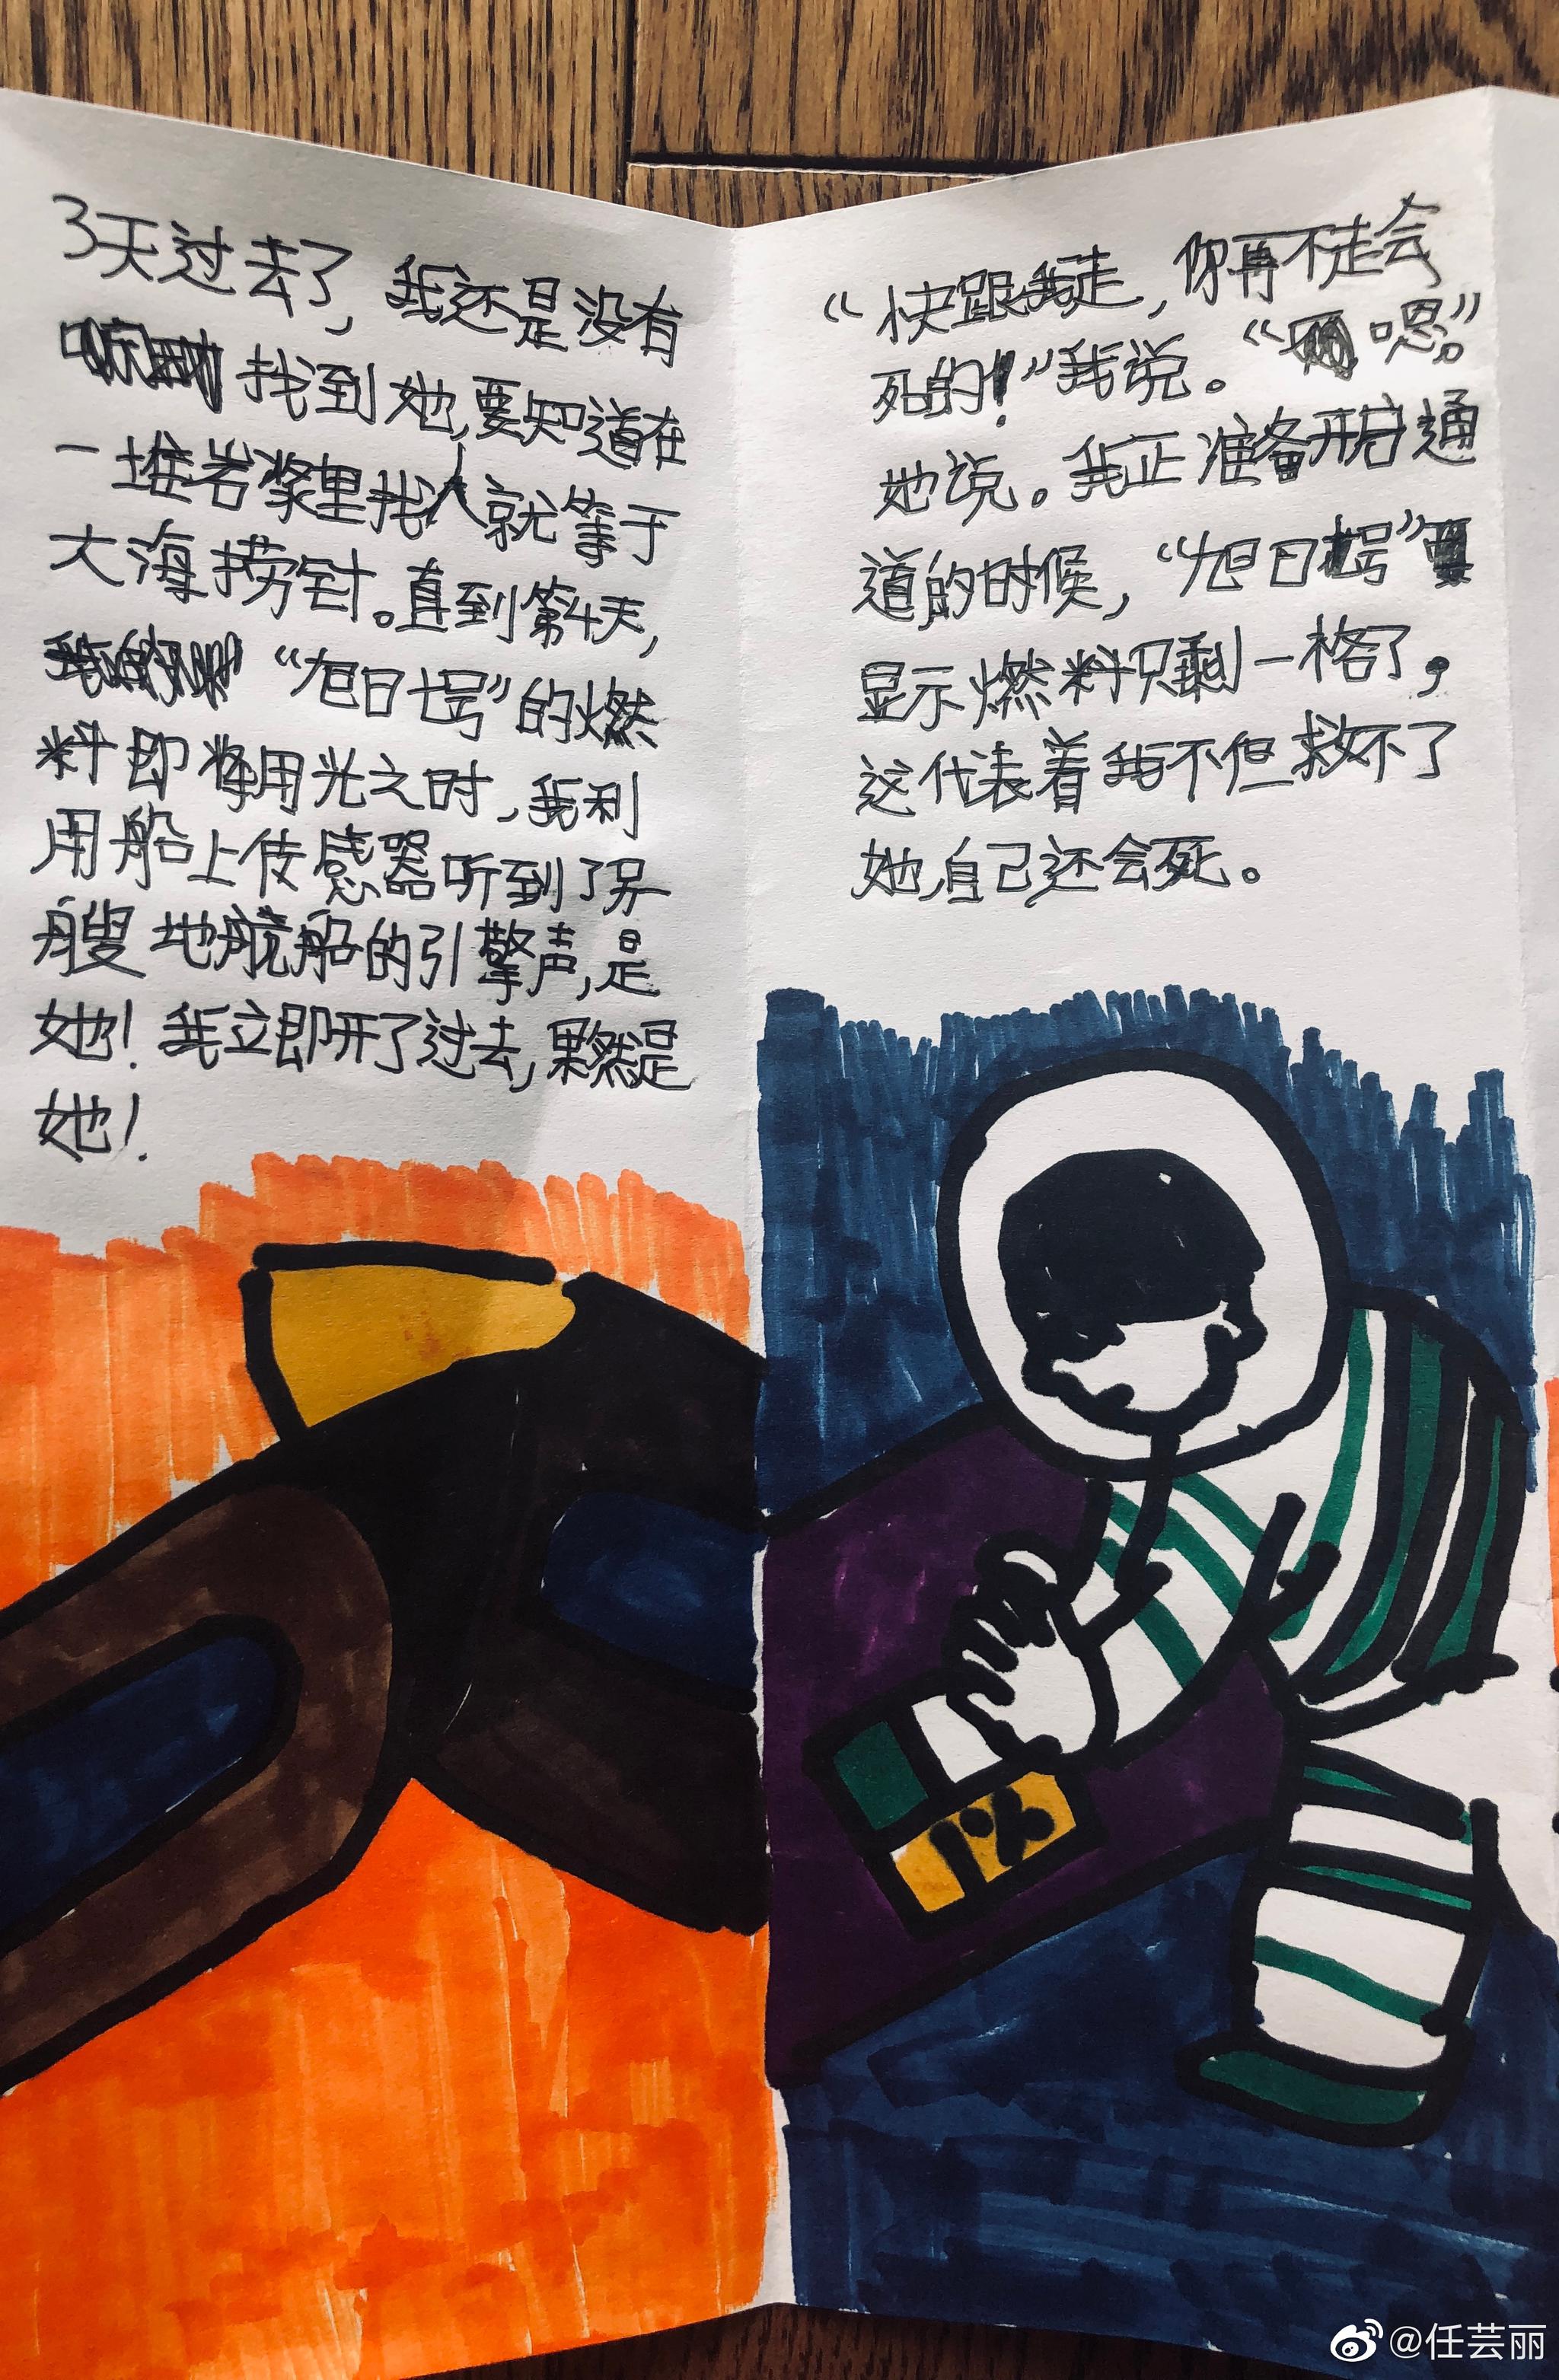 3天过去了,我还是没有
找到她,要知道在
一堆岩浆里找人就等于
大海捞针。直到第4天,
“旭日七号”的燃
料即将用光之时,我利
用船上传感器听到了另一
艘地航船的引擎声,是
她!我立即开了过去,果然是
她!
“快跟我走,你再不走会
死的!”我说。“嗯。”
她说。我正准备开启通
道的时候,“旭日七号”
显示燃料只剩一格了,
这代表着我不但救不了
她,自己还会死。
1%
@任芸丽